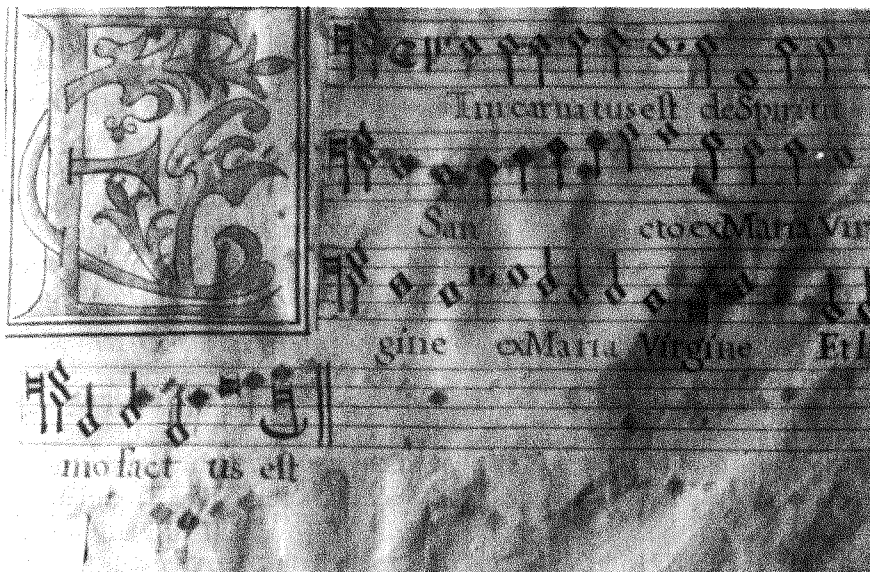 E T Incarnatus est de Spiritu
San cto ex Maria Vir
gine ex Maria Virgine Et h
mo fact us est